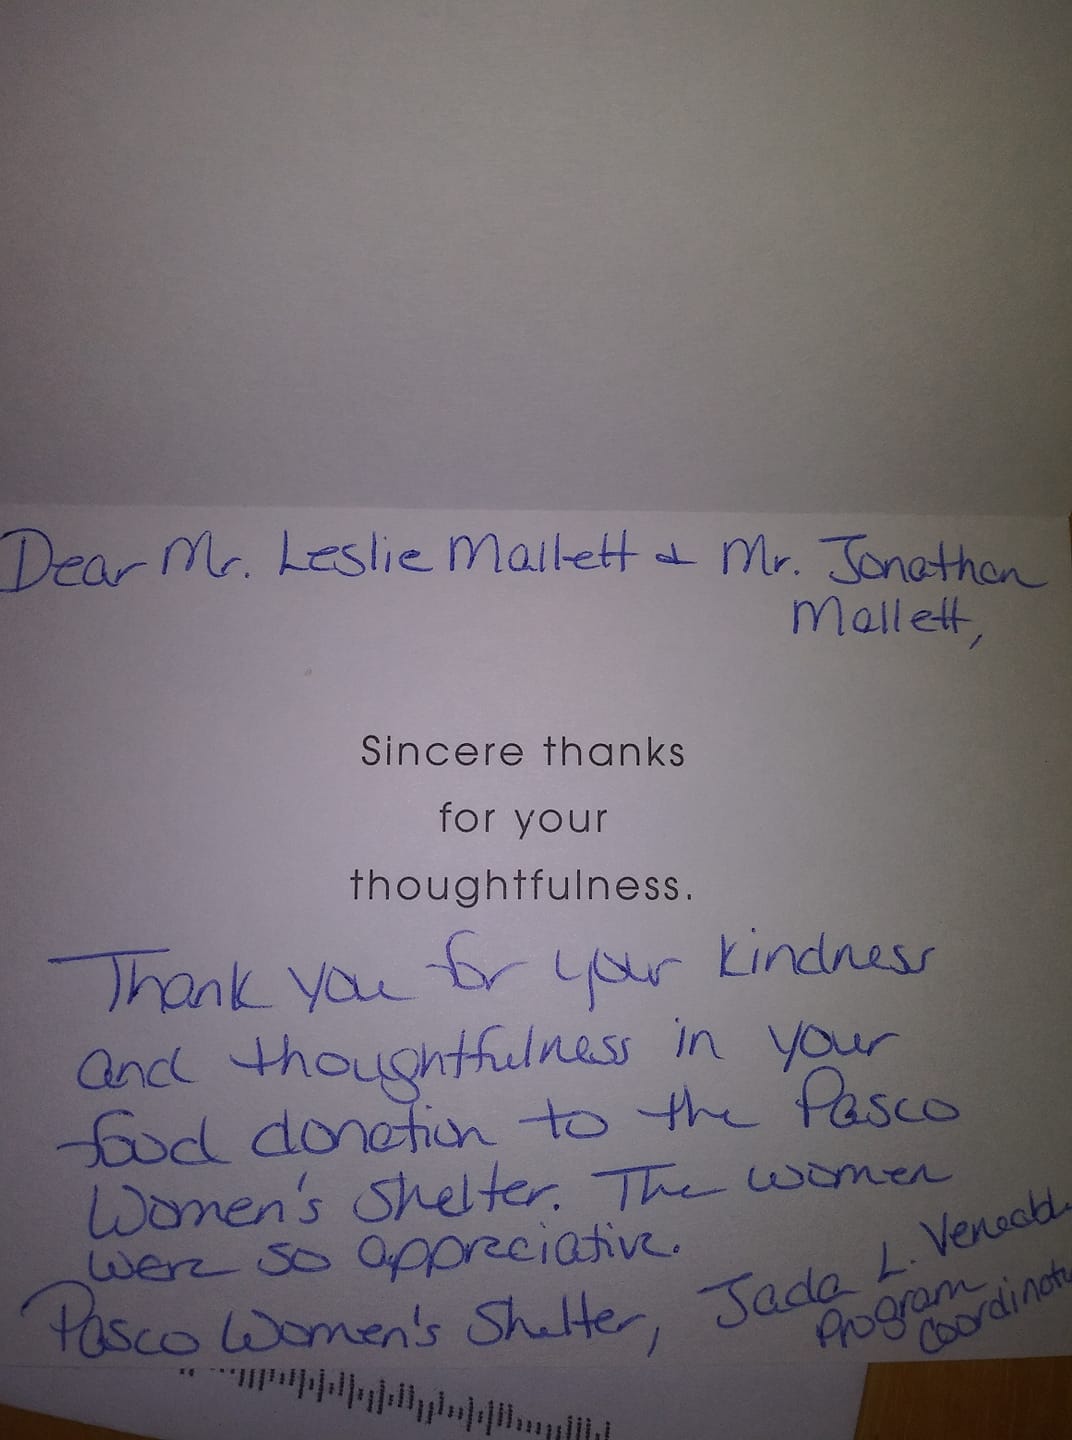 Dear Mr. Leslie Mallett & Mr. Jonathan
Mallett,
Sincere thanks
for your
thoughtfulness.
Thank you for your kindness
and thoughtfulness in your
food donation to the Pasco
Women's Shelter. The women
were so appreciative.
Pasco Women's Shelter, Jada L.
Program